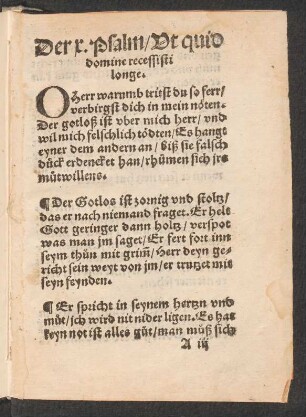 Der x. Psalm/Vt quid
domine recessisti
longe.
O Herr warumb tritst du so ferr/
verbirgst dich in mein nöten.
Der gotloß ist vber mich herr/ vnd
wil mich felschlich tödten/ Es hangt
eyner dem andern an/ biß sie falsch
dück erdencket han/ rhümen sich jrs
mütwillens.
¶ Der Gotlos ist zornig vnd stoltz/
das er nach niemand fraget. Er helt
Gott geringer dann holtz/ verspot
was man jm saget/ Er fert fort inn
seym thün mit grim̃/ Herr deyn ge-
richt sein weyt von jm/ er trutzet mit
seyn feynden.
¶ Er spricht in seynem hertzn vnd
müt/ ich wird nit nider ligen. Es hat
keyn not ist alles güt/ man müß sich
A iij